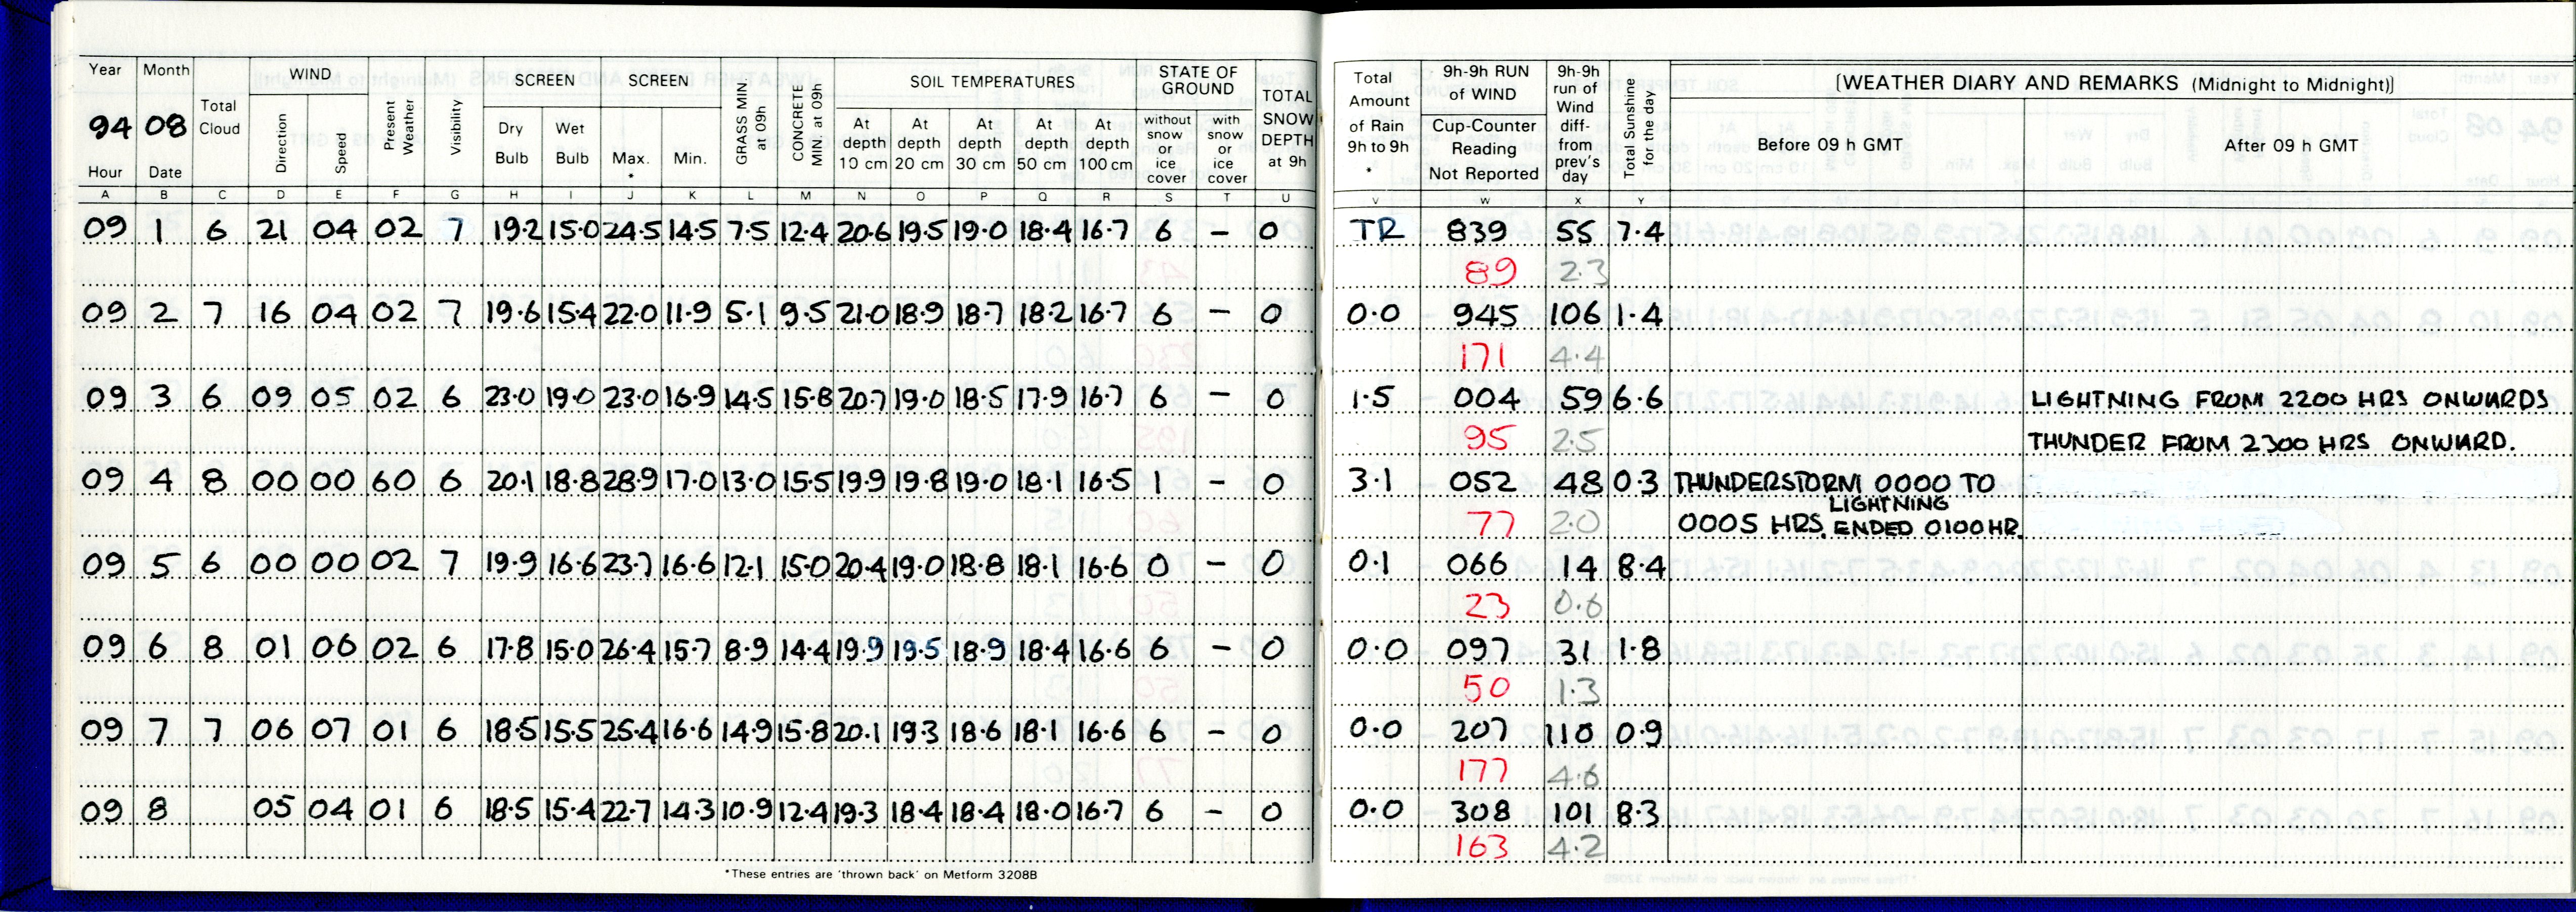 Year Month Total Cloud WIND Present Weather Visibility SCREEN SCREEN GRASS MIN at 09h CONCRETE MIN. at 09h SOIL TEMPERATURES STATE OF GROUND TOTAL SNOW DEPTH at 9h Total Amount of Rain 9h to 9h * 9h-9h RUN of WIND 9h-9h run of Wind diff- from prev's day Total Sunshine for the day [WEATHER DIARY AND REMARKS (Midnight to Midnight)]
94 08 Direction Speed Dry Bulb Wet Bulb Max. * Min. At depth 10 cm At depth 20 cm At depth 30 cm At depth 50 cm At depth 100 cm without snow or ice cover with snow or ice cover Cup-Counter Reading Not Reported Before 09 h GMT After 09 h GMT
Hour Date
A B C D E F G H I J K L M N O P Q R S T U V W X Y
09 1 6 21 04 02 7 19.2 15.0 24.5 14.5 7.5 12.4 20.6 19.5 19.0 18.4 16.7 6 – 0 TR 839 55 7.4
89 2.3
09 2 7 16 04 02 7 19.6 15.4 22.0 11.9 5.1 9.5 21.0 18.9 18.7 18.2 16.7 6 – 0 0.0 945 106 1.4
171 4.4
09 3 6 09 05 02 6 23.0 19.0 23.0 16.9 14.5 15.8 20.7 19.0 18.5 17.9 16.7 6 – 0 1.5 004 59 6.6 LIGHTNING FROM 2200 HRS ONWARDS
95 2.5 THUNDER FROM 2300 HRS ONWARD.
09 4 8 00 00 60 6 20.1 18.8 28.9 17.0 13.0 15.5 19.9 19.8 19.0 18.1 16.5 1 – 0 3.1 052 48 0.3 THUNDERSTORM 0000 TO
77 2.0 0005 HRS. LIGHTNING ENDED 0100HR.
09 5 6 00 00 02 7 19.9 16.6 23.7 16.6 12.1 15.0 20.4 19.0 18.8 18.1 16.6 0 – 0 0.1 066 14 8.4
23 0.6
09 6 8 01 06 02 6 17.8 15.0 26.4 15.7 8.9 14.4 19.9 19.5 18.9 18.4 16.6 6 – 0 0.0 097 31 1.8
50 1.3
09 7 7 06 07 01 6 18.5 15.5 25.4 16.6 14.9 15.8 20.1 19.3 18.6 18.1 16.6 6 – 0 0.0 207 110 0.9
177 4.6
09 8 05 04 01 6 18.5 15.4 22.7 14.3 10.9 12.4 19.3 18.4 18.4 18.0 16.7 6 – 0 0.0 308 101 8.3
163 4.2
*These entries are 'thrown back' on Metform 3208B